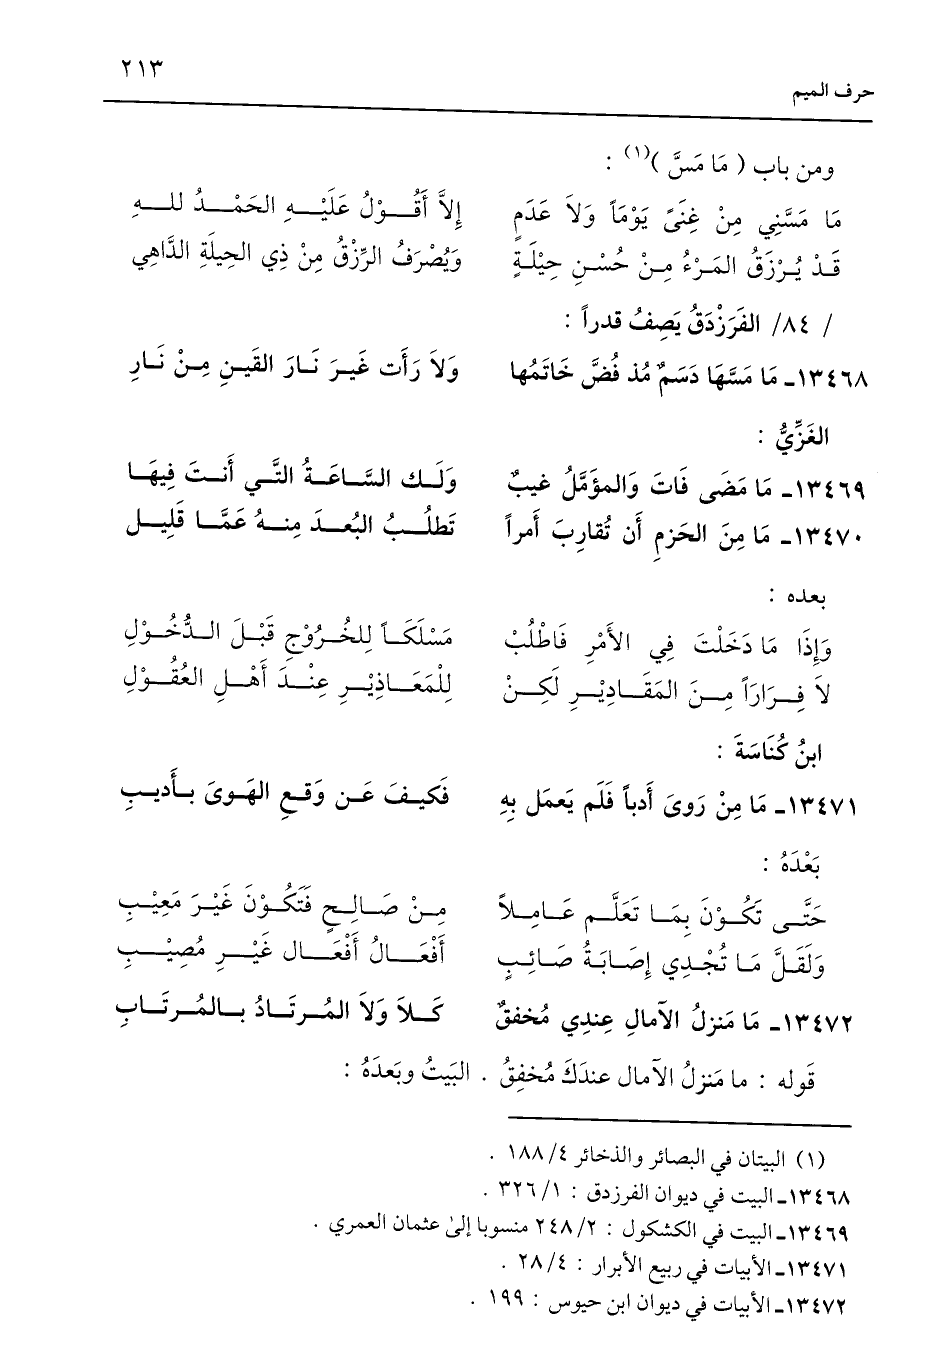 ٢١٣
حرف الميم
ومن باب ( مَا مَسَّ )(١) :
مَا مَسَّنِي مِنْ غِنَىً يَوْمَاً وَلاَ عَدَمٍ إِلاَّ أَقُـولُ عَلَيْـهِ الحَمْـدُ للـهِ
قَدْ يُـرْزَقُ المَرْءُ مِـنْ حُسْـنِ حِيْلَةٍ وَيُصْرَفُ الرِّزْقُ مِنْ ذِي الحِيلَةِ الدَّاهِي
/ ٨٤/ الفَرَزدَقُ يَصِفُ قدراً :
١٣٤٦٨ـ مَا مَسَّهَا دَسَمٌ مُذ فُضَّ خَاتَمُها وَلاَ رَأَت غَيـرَ نَـارَ القَيـنِ مِـنْ نَـارِ
الغَزِّيُّ :
١٣٤٦٩ـ مَا مَضَى فَاتَ وَالمؤَمَّلُ غَيبٌ وَلَـك السَّـاعَـةُ التَّـي أَنـتَ فِيهَـا
١٣٤٧٠ـ مَا مِنَ الحَزمِ أَن تُقارِبَ أَمراً تَطلُـبُ البُعـدَ مِنـهُ عَمَّـا قَلِيـل
بعده :
وَإِذَا مَا دَخَلْتَ فِي الأَمْرِ فَاطْلُبْ مَسْلَكَـاً لِلخُـرُوْجِ قَبْـلَ الـدُّخُـوْلِ
لاَ فِـرَارَاً مِـنَ المَقَـادِيْـرِ لَكِـنْ لِلْمَعَـاذِيْـرِ عِنْـدَ أَهْـلِ العُقُـوْلِ
ابنُ كُنَاسَةَ :
١٣٤٧١ـ مَا مِنْ رَوىَ أَدباً فَلَم يَعمَل بِهِ فَكَيـفَ عَـن وَقـعِ الهَـوىَ بـأَديـبِ
بَعْدَهُ :
حَتَّـى تَكُـوْنَ بِمَـا تَعَلَّـم عَـامِـلاً مِـنْ صَـالِـحٍ فَتَكُـوْنَ غَيْـرَ مَعِيْـبِ
وَلَقَلَّ مَـا تُجْـدِي إِصَـابَـةُ صَـائِـبٍ أَفْعَـالُ أَفْعَـال غَيْـرِ مُصِيْـبِ
١٣٤٧٢ـ مَا مَنزِلُ الآمالِ عِندِي مُخفقٌ كَـلاَ وَلاَ المُـرتَـادُ بـالمُـرتَـابِ
قَوله : ما مَنزِلُ الآمال عندَكَ مُخفِقُ . البَيتُ وبَعدَهُ :
(١) البيتان في البصائر والذخائر ٤/ ١٨٨ .
١٣٤٦٨ـ البيت في ديوان الفرزدق : ١/ ٣٢٦ .
١٣٤٦٩ـ البيت في الكشكول : ٢/ ٢٤٨ منسوبا إلىٰ عثمان العمري .
١٣٤٧١ـ الأبيات في ربيع الأبرار : ٤/ ٢٨ .
١٣٤٧٢ـ الأبيات في ديوان ابن حيوس : ١٩٩ .